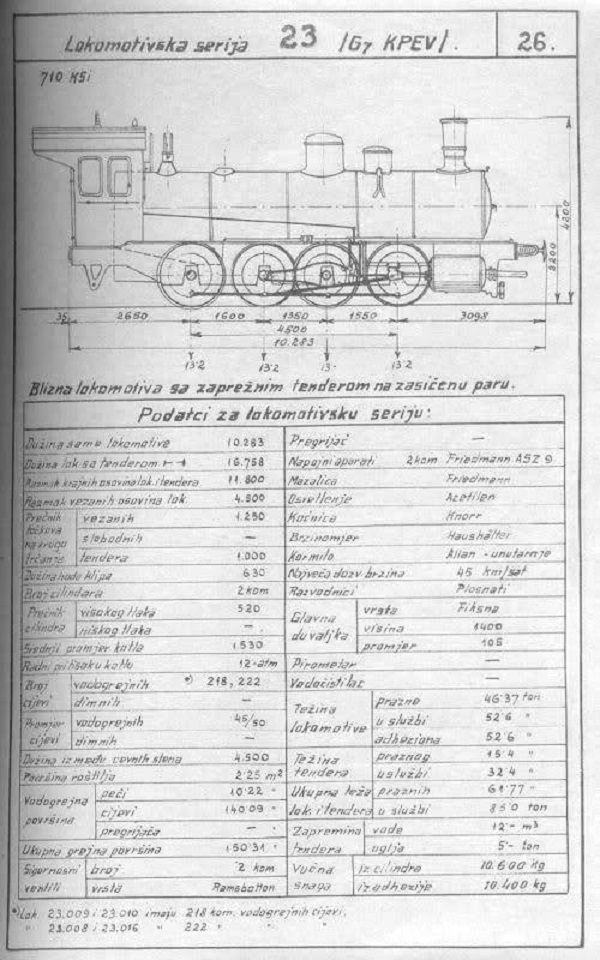 Lokomotivska serija 23 /G7 KPEV/. 26.
710 KSi
4200
2200
35 2650 1600 1350 1550 3098
4500
10.283
13·2 13·2 13· 13·2
Blizna lokomotiva sa zaprežnim tenderom na zasićenu paru.
Podatci za lokomotivsku seriju:
Dužina same lokomotive 10.283
Dužina lok sa tenderom 16.758
Razmak krajnih osovina lok. i tendera 11.800
Razmak vezanih osovina lok 4.500
Prečnik točkova na krugu trčanja
vezanih 1.250
slobodnih —
tendera 1.000
Dužina hoda klipa 630
Broj cilindara 2 kom
Prečnik cilindra
visokog tlaka 520
niskog tlaka —
Srednji promjer kotla 1.530
Radni pritisak u kotlu 12 - atm
Broj cijevi
vodogrejnih *) 218, 222
dimnih —
Promjer cijevi
vodogrejnih 45/50
dimnih —
Dužina između cevnih stena 4.500
Površina roštilja 2·25 m²
Vodogrejna površina
peći 10·22 "
cijevi 140·09 "
pregrijača — "
Ukupna grejna površina 150·31 "
Sigurnosni ventili
broj 2 kom
vrsta Ramsbotton
Pregrijač —
Napojni aparati 2 kom Friedmann ASZ 9
Mazalica Friedmann
Osvetlenje Azetilen
Kočnica Knorr
Brzinomjer Haushälter
Kormilo Allan - unutarnje
Najveća dozv brzina 45 km/sat
Razvodnici Plosnati
Glavna duvaljka
vrsta Fiksna
visina 1400
promjer 105
Pirometar —
Vodočistilac —
Težina lokomotive
prazne 46·37 ton
u službi 52·6 "
adheziona 52·6 "
Težina tendera
praznog 15·4 "
u službi 32·4 "
Ukupna teža lok. i tendera
praznih 61·77 "
u službi 85·0 ton
Zapremina tendera
vode 12 - m³
uglja 5 - ton
Vučna snaga
iz cilindra 10.600 kg
iz adhezije 10.400 kg
*) Lok. 23.009 i 23.010 imaju 218 kom. vodogrejnih cijevi.
" 23.008 i 23.016 " 222 " " "